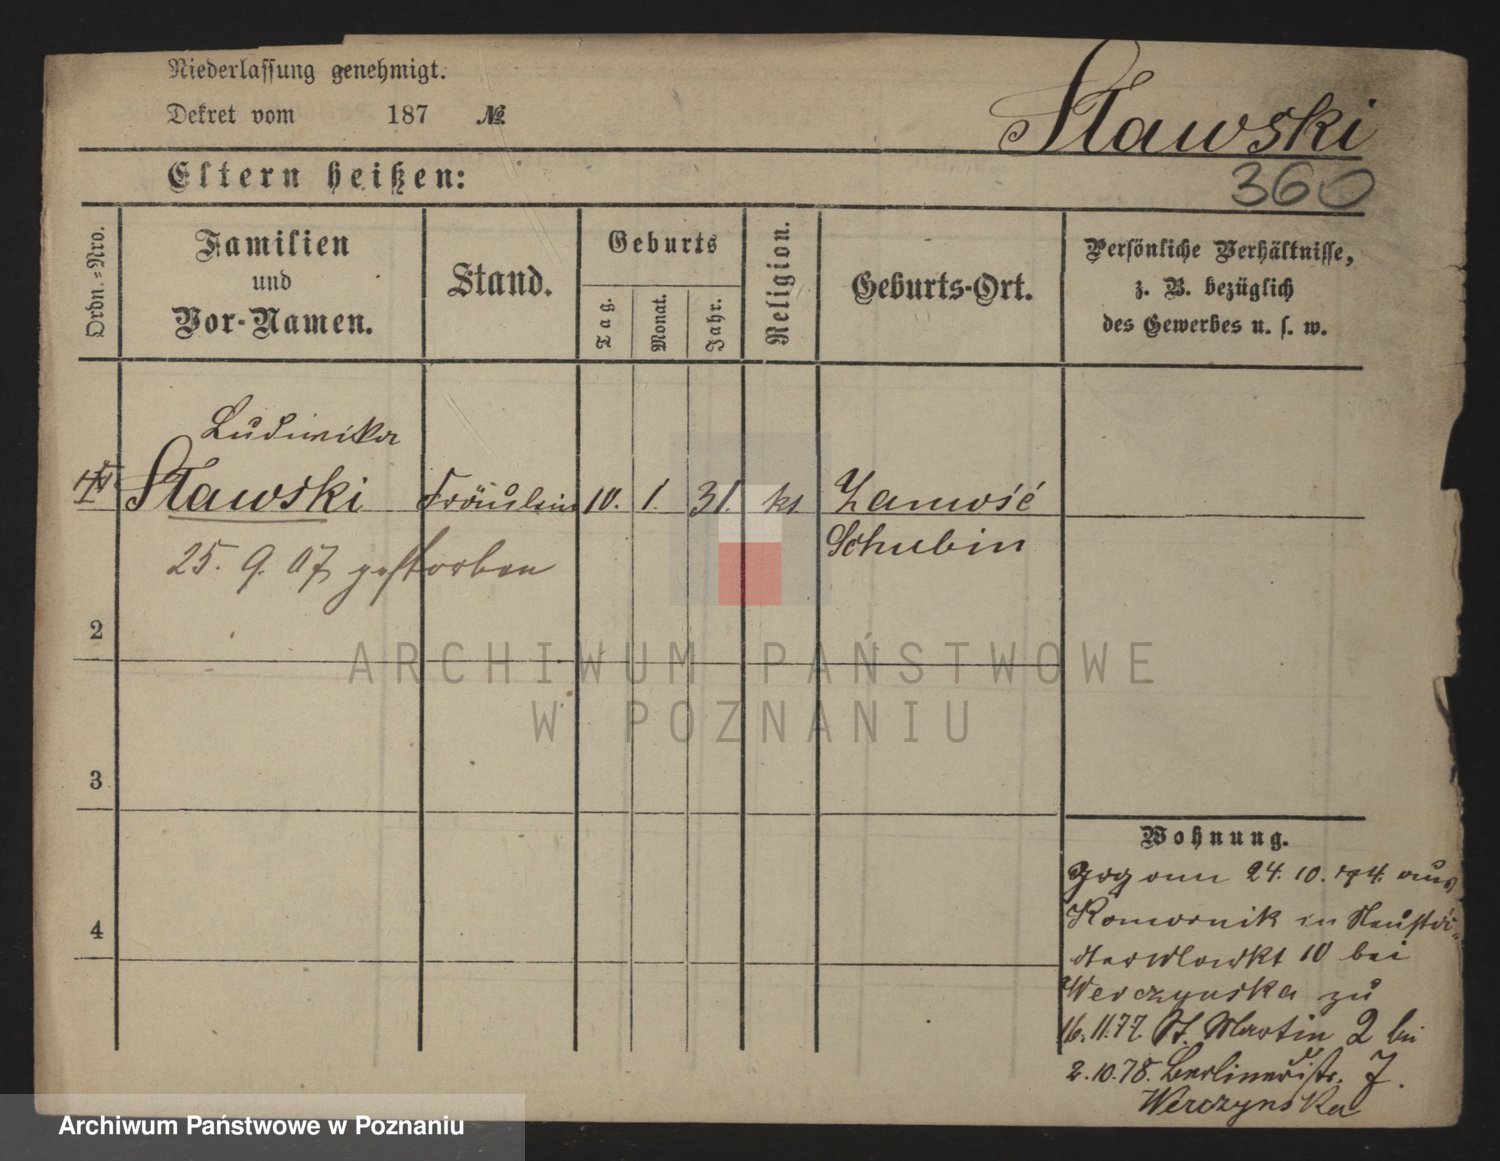 Niederlassung genehmigt.
Dekret vom 187 №
Sławski
360
Eltern heißen:
Ordn.-Nro.
Familien
und
Vor-Namen.
Stand.
Geburts
Tag.
Monat.
Jahr.
Religion.
Geburts-Ort.
Persönliche Verhältnisse,
z. B. bezüglich
des Gewerbes u. s. w.
Ludwika
Sławski Fräulein 10. 1. 31. Zamość
Schubin
25. 9. 07 gestorben
2
3
4
Wohnung.
Zog am 24. 10. 74. aus
Komornik in Neustäd-
ter Markt 10 bei
Werczynska zu
16. 11. 77. St. Martin 2 bei
2. 10. 78. Berlinerstr. 7.
Werczynska
ARCHIWUM PAŃSTWOWE
W POZNANIU
Archiwum Państwowe w Poznaniu